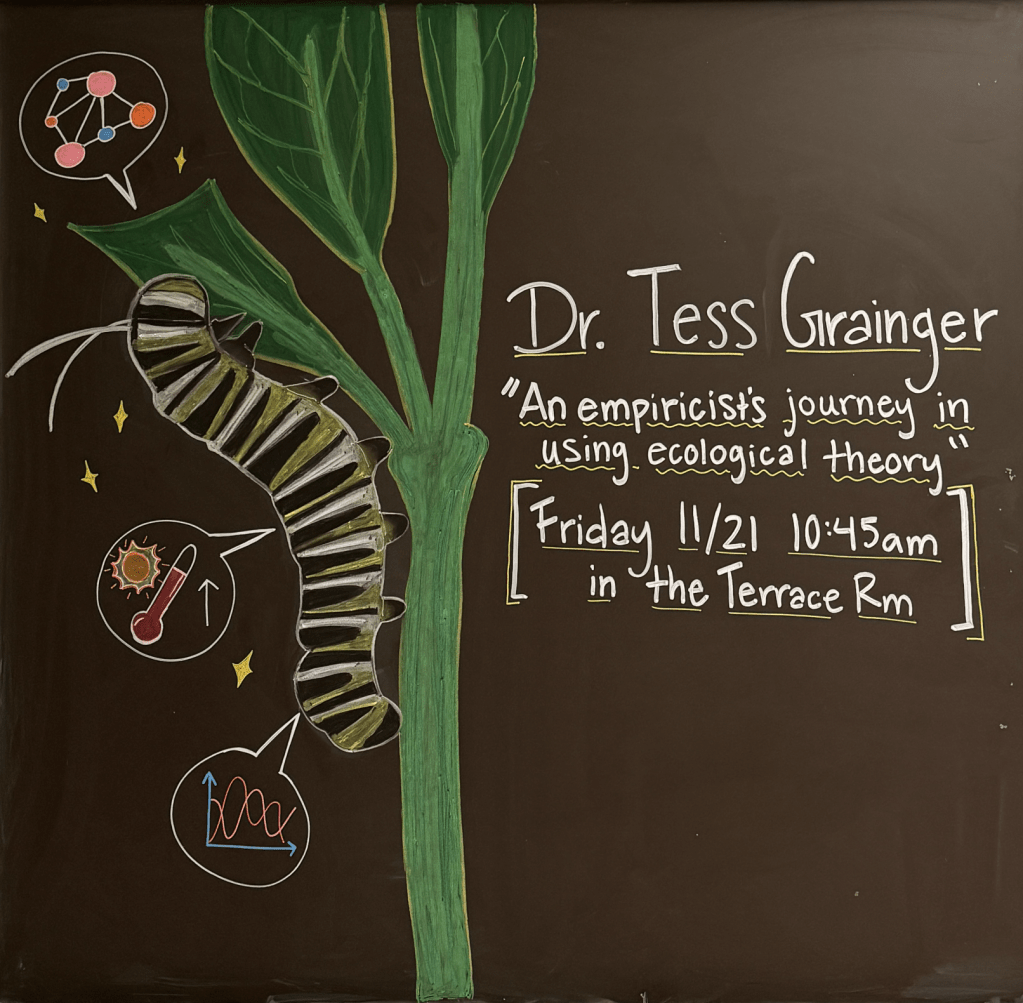 Dr. Tess Grainger
"An empiricist's journey in
using ecological theory"
[Friday 11/21 10:45am
in the Terrace Rm]